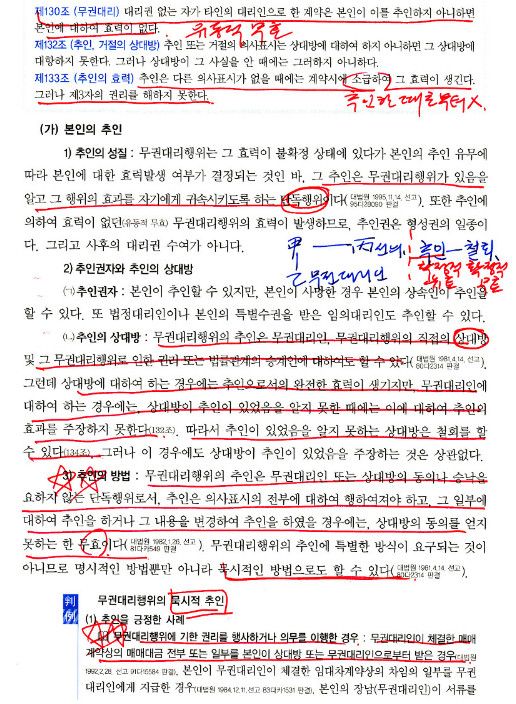 제130조 (무권대리) 대리권 없는 자가 타인의 대리인으로 한 계약은 본인이 이를 추인하지 아니하면
본인에 대하여 효력이 없다. 유동적 무효
제132조 (추인, 거절의 상대방) 추인 또는 거절의 의사표시는 상대방에 대하여 하지 아니하면 그 상대방에
대항하지 못한다. 그러나 상대방이 그 사실을 안 때에는 그러하지 아니하다.
제133조 (추인의 효력) 추인은 다른 의사표시가 없을 때에는 계약시에 소급하여 그 효력이 생긴다.
그러나 제3자의 권리를 해하지 못한다. 추인한 때로부터 X.
(가) 본인의 추인
1) 추인의 성질 : 무권대리행위는 그 효력이 불확정 상태에 있다가 본인의 추인 유무에
따라 본인에 대한 효력발생 여부가 결정되는 것인 바, 그 추인은 무권대리행위가 있음을
알고 그 행위의 효과를 자기에게 귀속시키도록 하는 단독행위이다(대법원 1995.11.14, 선고 95다28090 판결). 또한 추인에
의하여 효력이 없던(유동적 무효) 무권대리행위의 효력이 발생하므로, 추인권은 형성권의 일종이
다. 그리고 사후의 대리권 수여가 아니다.
甲 丙 선의 추인 - 철회
乙 무권대리인 확정적 유효 확정적 무효
2) 추인권자와 추인의 상대방
㈀ 추인권자 : 본인이 추인할 수 있지만, 본인이 사망한 경우 본인의 상속인이 추인을
할 수 있다. 또 법정대리인이나 본인의 특별수권을 받은 임의대리인도 추인할 수 있다.
㈁ 추인의 상대방 : 무권대리행위의 추인은 무권대리인, 무권대리행위의 직접의 상대방
및 그 무권대리행위로 인한 권리 또는 법률관계의 승계인에 대하여도 할 수 있다(대법원 1981.4.14, 선고 80다2314 판결).
그런데 상대방에 대하여 하는 경우에는 추인으로서의 완전한 효력이 생기지만, 무권대리인에
대하여 하는 경우에는, 상대방이 추인이 있었음을 알지 못한 때에는 이에 대하여 추인의
효과를 주장하지 못한다(132조). 따라서 추인이 있었음을 알지 못하는 상대방은 철회를 할
수 있다(134조). 그러나 이 경우에도 상대방이 추인이 있었음을 주장하는 것은 상관없다.
3) 추인의 방법 : 무권대리행위의 추인은 무권대리인 또는 상대방의 동의나 승낙을
요하지 않는 단독행위로서, 추인은 의사표시의 전부에 대하여 행하여져야 하고, 그 일부에
대하여 추인을 하거나 그 내용을 변경하여 추인을 하였을 경우에는, 상대방의 동의를 얻지
못하는 한 무효이다(대법원 1982.1.26, 선고 81다카549 판결). 무권대리행위의 추인에 특별한 방식이 요구되는 것이
아니므로 명시적인 방법뿐만 아니라 묵시적인 방법으로도 할 수 있다(대법원 1981.4.14, 선고 80다2314 판결).
판례 무권대리행위의 묵시적 추인
(1) 추인을 긍정한 사례
무권대리행위에 기한 권리를 행사하거나 의무를 이행한 경우 : 무권대리인이 체결한 매매
계약상의 매매대금 전부 또는 일부를 본인이 상대방 또는 무권대리인으로부터 받은 경우(대법원
1992.2.28, 선고 91다15584 판결). 본인이 무권대리인이 체결한 임대차계약상의 차임의 일부를 무권
대리인에게 지급한 경우(대법원 1984.12.11, 선고 83다카1531 판결). 본인의 장남(무권대리인)이 서류를